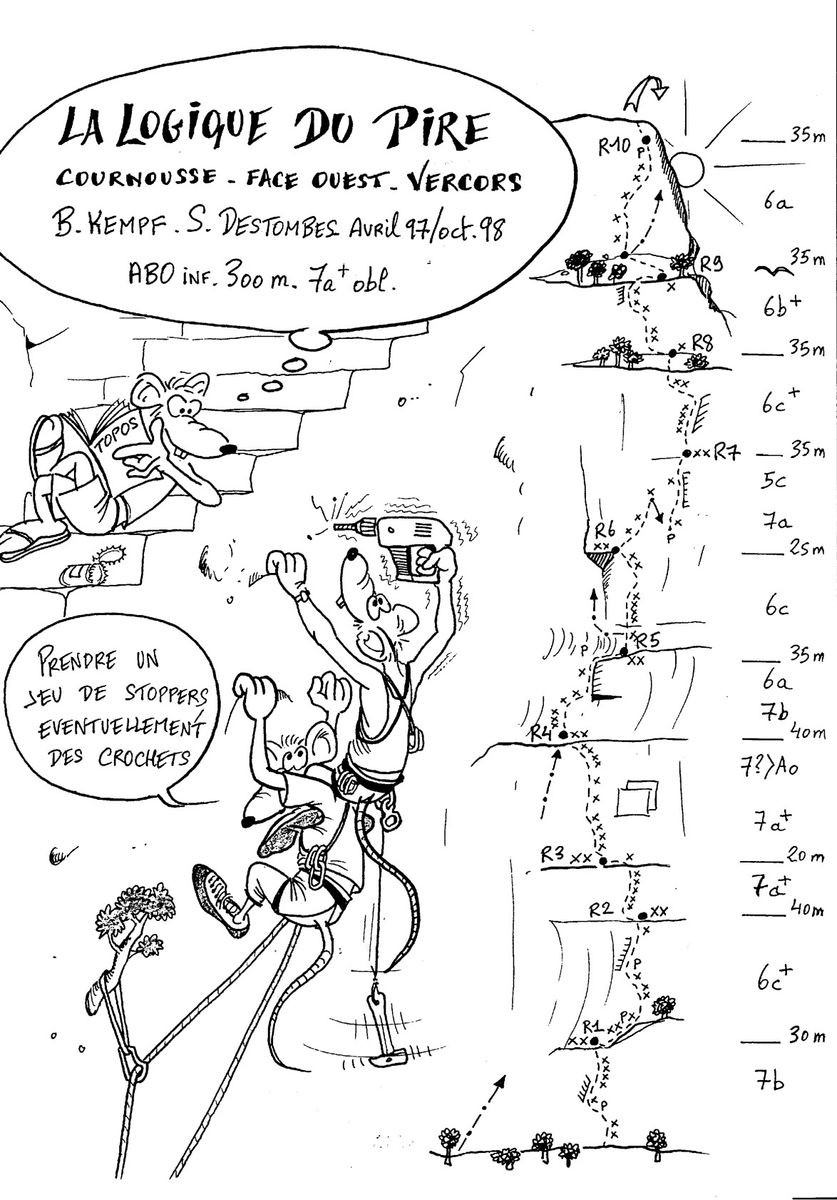 LA LOGIQUE DU PIRE
COURNOUSSE - FACE OUEST - VERCORS
B. KEMPF . S. DESTOMBES AVRIL 97/oct. 98
ABO INF. 300 m. 7a+ obl.
TOPOS
PRENDRE UN
JEU DE STOPPERS
EVENTUELLEMENT
DES CROCHETS
35m
R10
P
6a
35m
R9
6b+
R8
35m
6c+
R7
35m
5c
7a
R6
P
25m
6c
R5
P
35m
6a
7b
R4
40m
7?>A0
7a+
R3
20m
7a+
R2
40m
P
6c+
P
R1
30m
7b
P